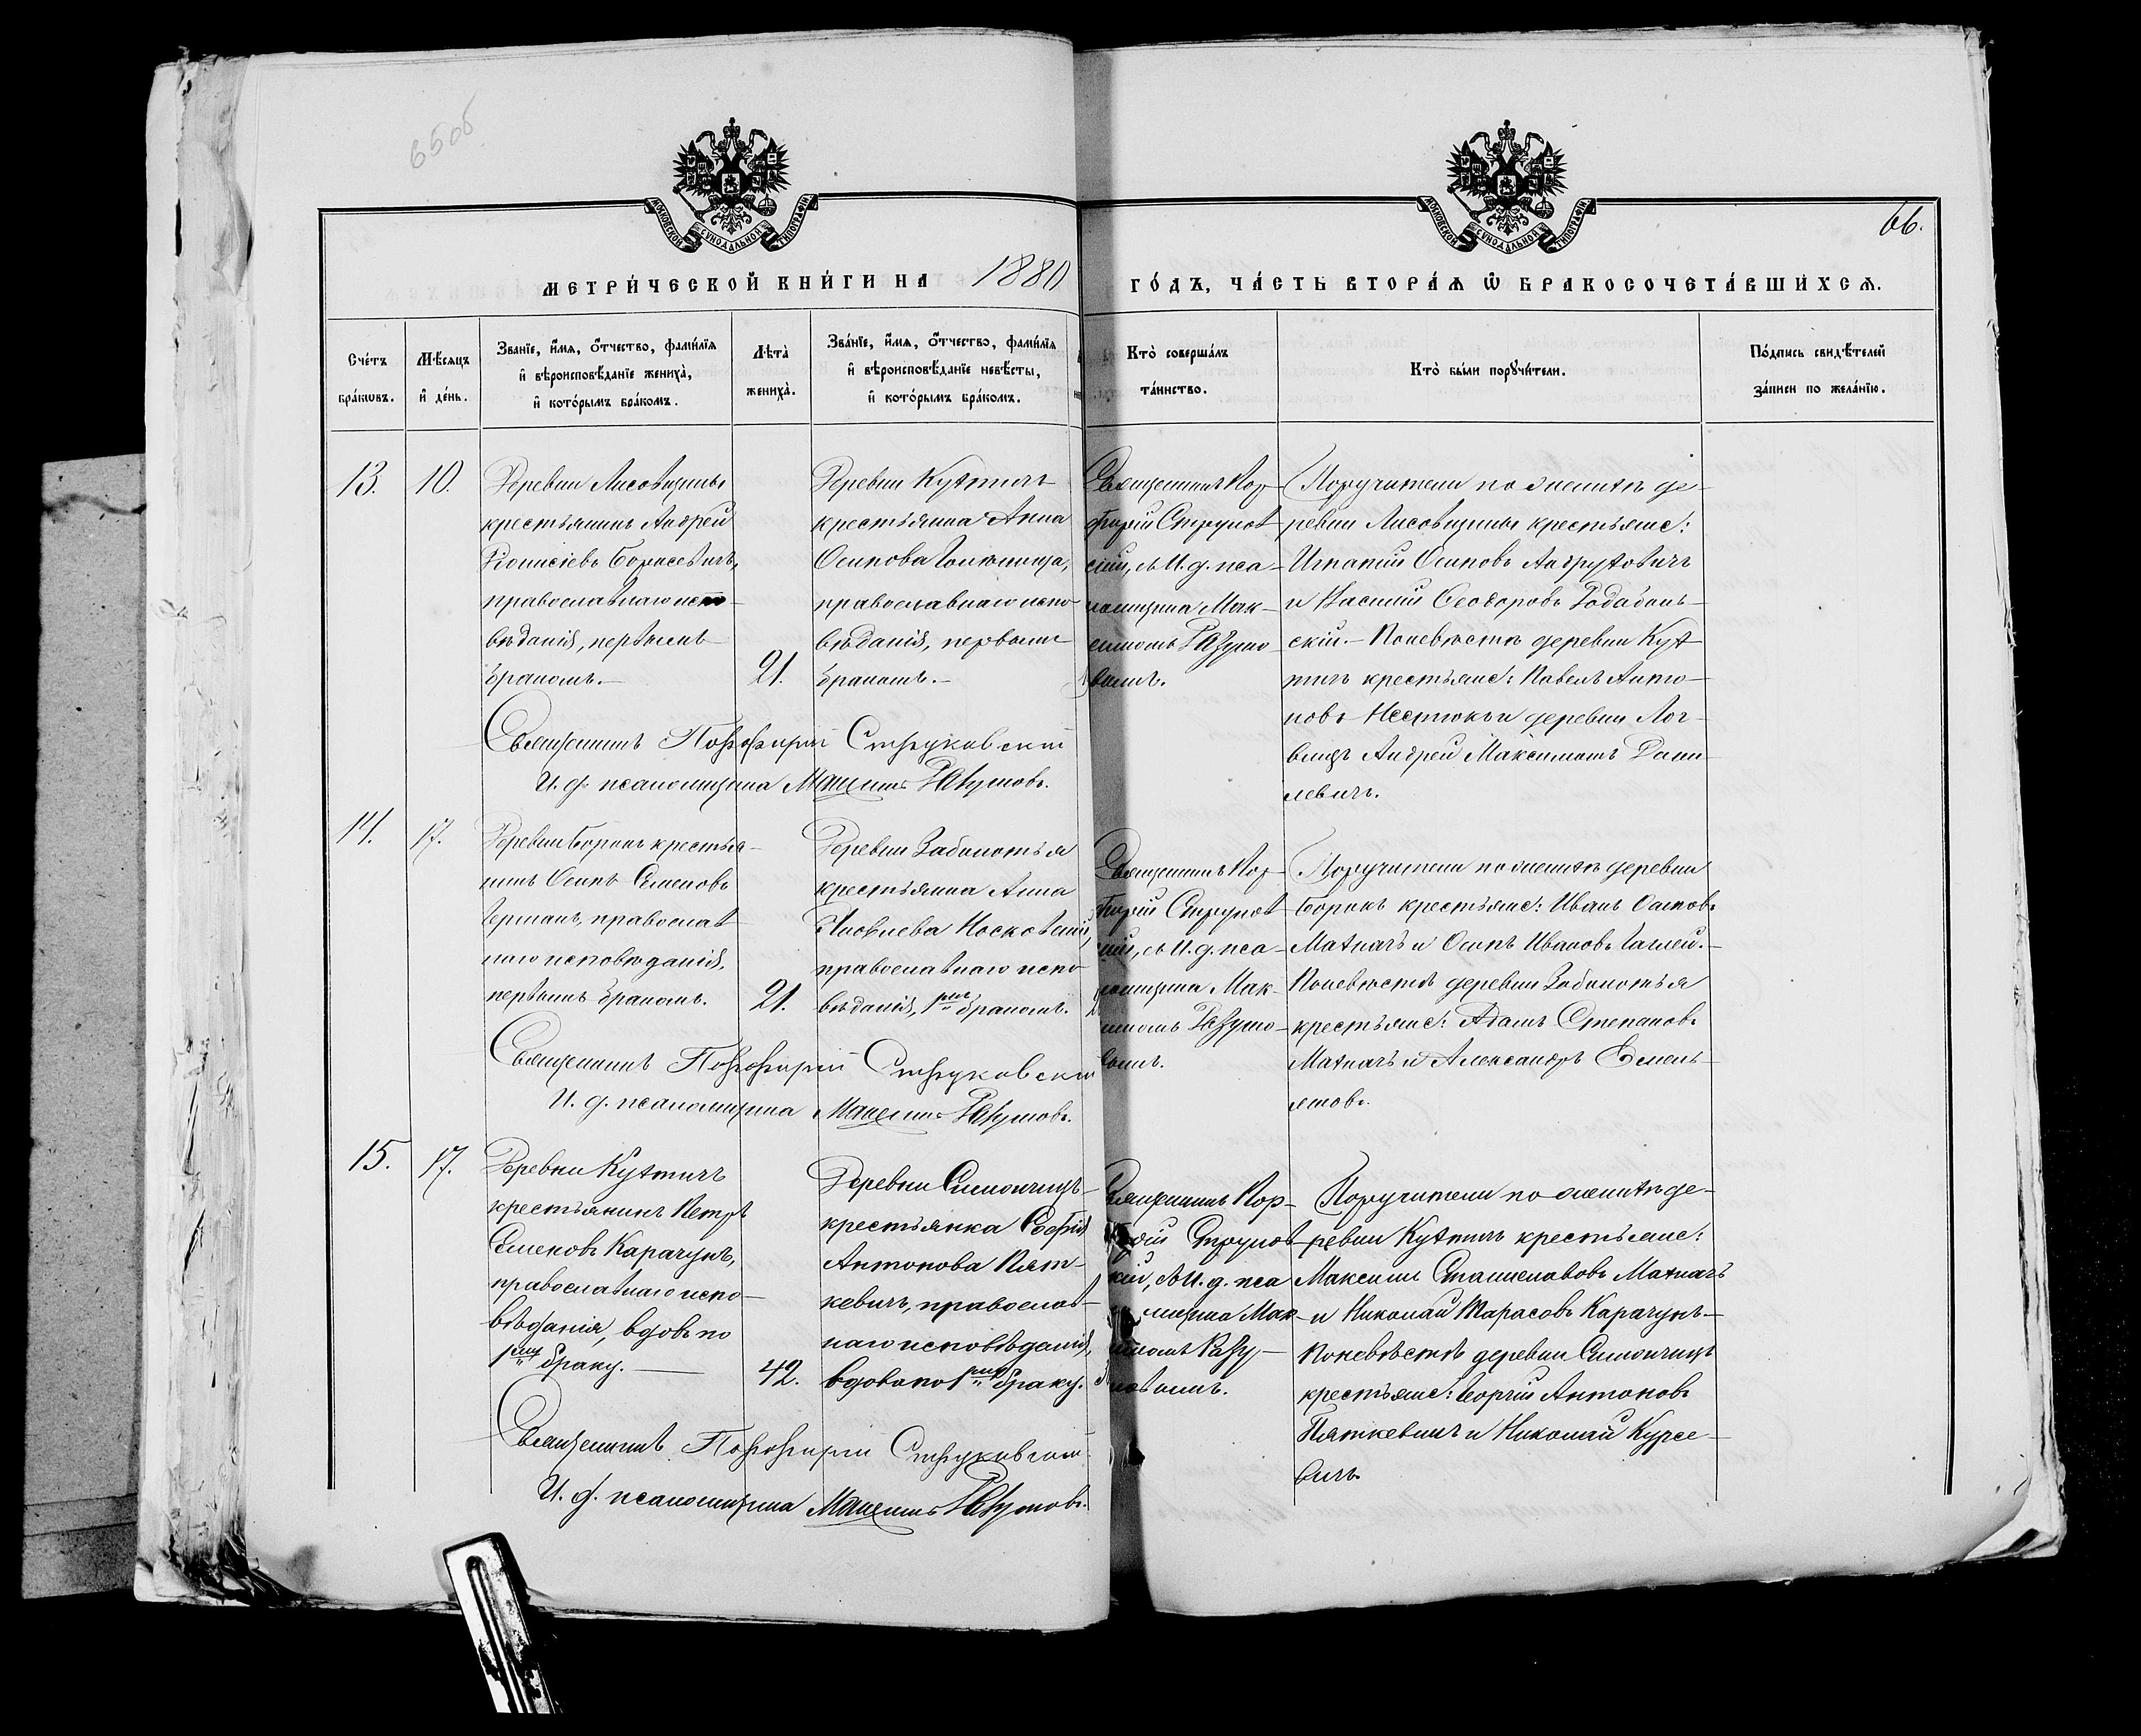 65об
66.
МОСКОВСКОЙ СѴНОДАЛЬНОЙ ТИПОГРАФІИ
МОСКОВСКОЙ СѴНОДАЛЬНОЙ ТИПОГРАФІИ
МЕТРИ́ЧЕСКОЙ КНИ́ГИ НА 1880 ГО́ДЪ, ЧА́СТЬ ВТОРА́Ѧ Ѿ БРАКОСОЧЕТА́ВШИХСѦ.
Сче́тъ бра́кѡвъ.
Мѣ́сяцъ и҆ де́нь.
Зва́нїе, и҆́мѧ, ѻ҆́тчество, фами́лїѧ
и҆ вѣроисповѣ́данїе жениха̀,
и҆ кото́рымъ бра́комъ.
Лѣ́та̀ жениха̀.
Зва́нїе, и҆́мѧ, ѻ҆́тчество, фами́лїѧ
и҆ вѣроисповѣ́данїе невѣ́сты,
и҆ кото́рымъ бра́комъ.
Кто̀ соверша́лъ
та́инство.
Кто̀ бы́ли порꙋчи́тели.
По́дпись свидѣ́телей
за́писи по жела́нїю.
13.
10.
Деревни Лисовщины
крестьянинъ Андрей
Діонисіевъ Борисевичъ,
православнаго испо-
вѣданія, первымъ
бракомъ.—
21.
Деревни Кутичъ
крестьянка Анна
Осипова
православнаго испо-
вѣданія, первымъ
бракомъ.—
Священникъ Пор-
фирій Струков-
скій, съ И. д. пса-
ломщика Мак-
симомъ Разумо-
вымъ.
Поручители по женихѣ де-
ревни Лисовщины крестьяне:
Игнатій Осиповъ
и Василій Ѳеодоровъ
скій.— По невѣстѣ деревни Кут-
тичъ крестьяне: Павелъ Анто-
новъ Нестюкъ и деревни Лог-
вищъ Андрей Максимовъ Дани-
левичъ.
Священникъ Порфирій Струковскій
И. д. псаломщика Максимъ Разумовъ.
14.
17.
Деревни Борокъ крестья-
нинъ Осипъ Семеновъ
Германъ, православ-
наго исповѣданія,
первымъ бракомъ.
21.
Деревни Заболотья
крестьянка Анна
Яковлева
православнаго испо-
вѣданія, 1мъ бракомъ.
Священникъ Пор-
фирій Струков-
скій, съ И. д. пса-
ломщика Мак-
симомъ Разумо-
вымъ.
Поручители по женихѣ деревни
Борокъ крестьяне: Иванъ Осиповъ
Махначъ и Осипъ Ивановъ
По невѣстѣ деревни Заболотья
крестьяне: Адамъ Степановъ
Махначъ и Александръ Емель-
яновъ.
Священникъ Порфирій Струковскій
И. д. псаломщика Максимъ Разумовъ.
15.
17.
Деревни Кутичъ
крестьянинъ Петръ
Семеновъ Карачунъ,
православнаго испо-
вѣданія, вдовъ по
1му браку.—
42.
Деревни Симончицъ
крестьянка Софія
Антонова Пят-
кевичъ, православ-
наго исповѣданія,
вдова по 1му браку.
Священникъ Пор-
фирій Струков-
скій, съ И. д. пса-
ломщика Мак-
симомъ Разу-
мовымъ.
Поручители по женихѣ де-
ревни Кутичъ крестьяне:
Максимъ Станиславовъ Махначъ
и Николай Тарасовъ Карачунъ—
По невѣстѣ деревни Симончицъ
крестьяне: Георгій Антоновъ
Пяткевичъ и Николай Курсе-
вичъ.
Священникъ Порфирій Струковскій
И. д. псаломщика Максимъ Разумовъ.